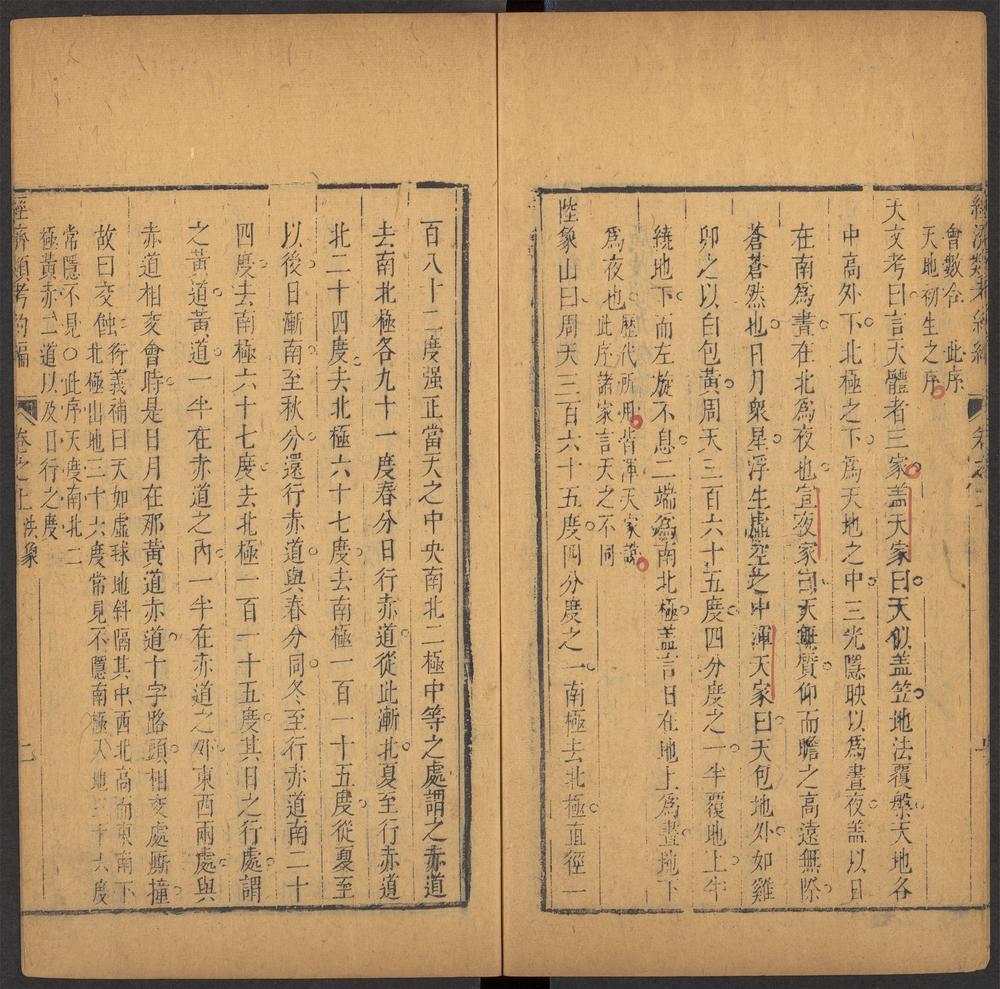 會數合 此序
天地初生之序
天文考曰言天體者三家盖天家曰天似盖笠地法覆槃天地各
中高外下北極之下為天地之中三光隱映以為晝夜盖以日
在南為晝在北為夜也宣夜家曰天無質仰而瞻之高遠無際
蒼蒼然也日月衆星浮生虛空之中渾天家曰天包地外如雞
卵之以白包黃周天三百六十五度四分度之一半覆地上半
繞地下而左旋不息二端為南北極盖言日在地上為晝地下
為夜也歷代所用皆渾天家說
此序諸家言天之不同
陸象山曰周天三百六十五度四分度之一南極去北極直徑一
百八十二度强正當天之中央南北二極中等之處謂之赤道
去南北極各九十一度春分日行赤道從此漸北夏至行赤道
北二十四度去北極六十七度去南極一百一十五度從夏至
以後日漸南至秋分還行赤道與春分同冬至行赤道南二十
四度去南極六十七度去北極一百一十五度其日之行處謂
之黃道黃道一半在赤道之內一半在赤道之外東西兩處與
赤道相交會時是日月在那黃道赤道十字路頭相交處厮撞
故曰交蝕衍義補曰天如虛球地斜隔其中西北高而東南下
北極出地三十六度常見不隱南極入地三十六度
常隱不見○此序天度南北二
極黃赤二道以及日行之度
經濟類考約編 卷之上 洪象